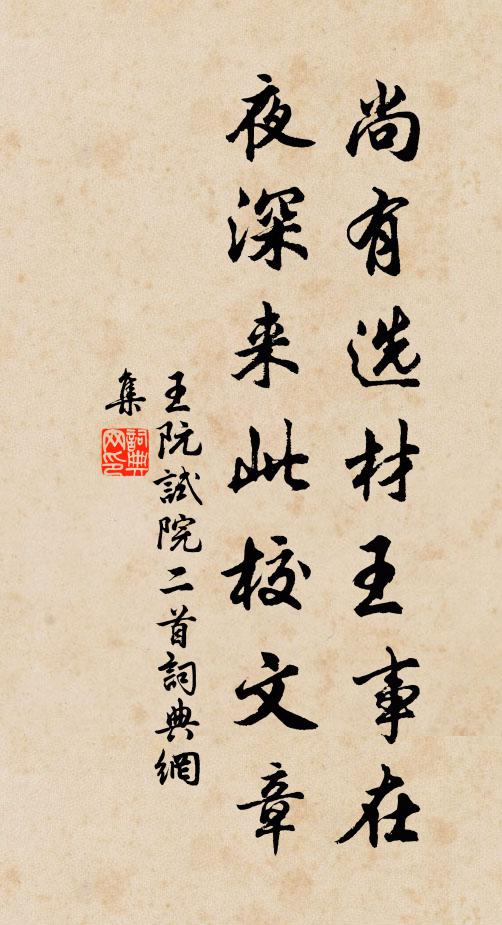 尚有选材王事在
夜深来此校文章
王阮試院二首詞典網
集
詞典
网印